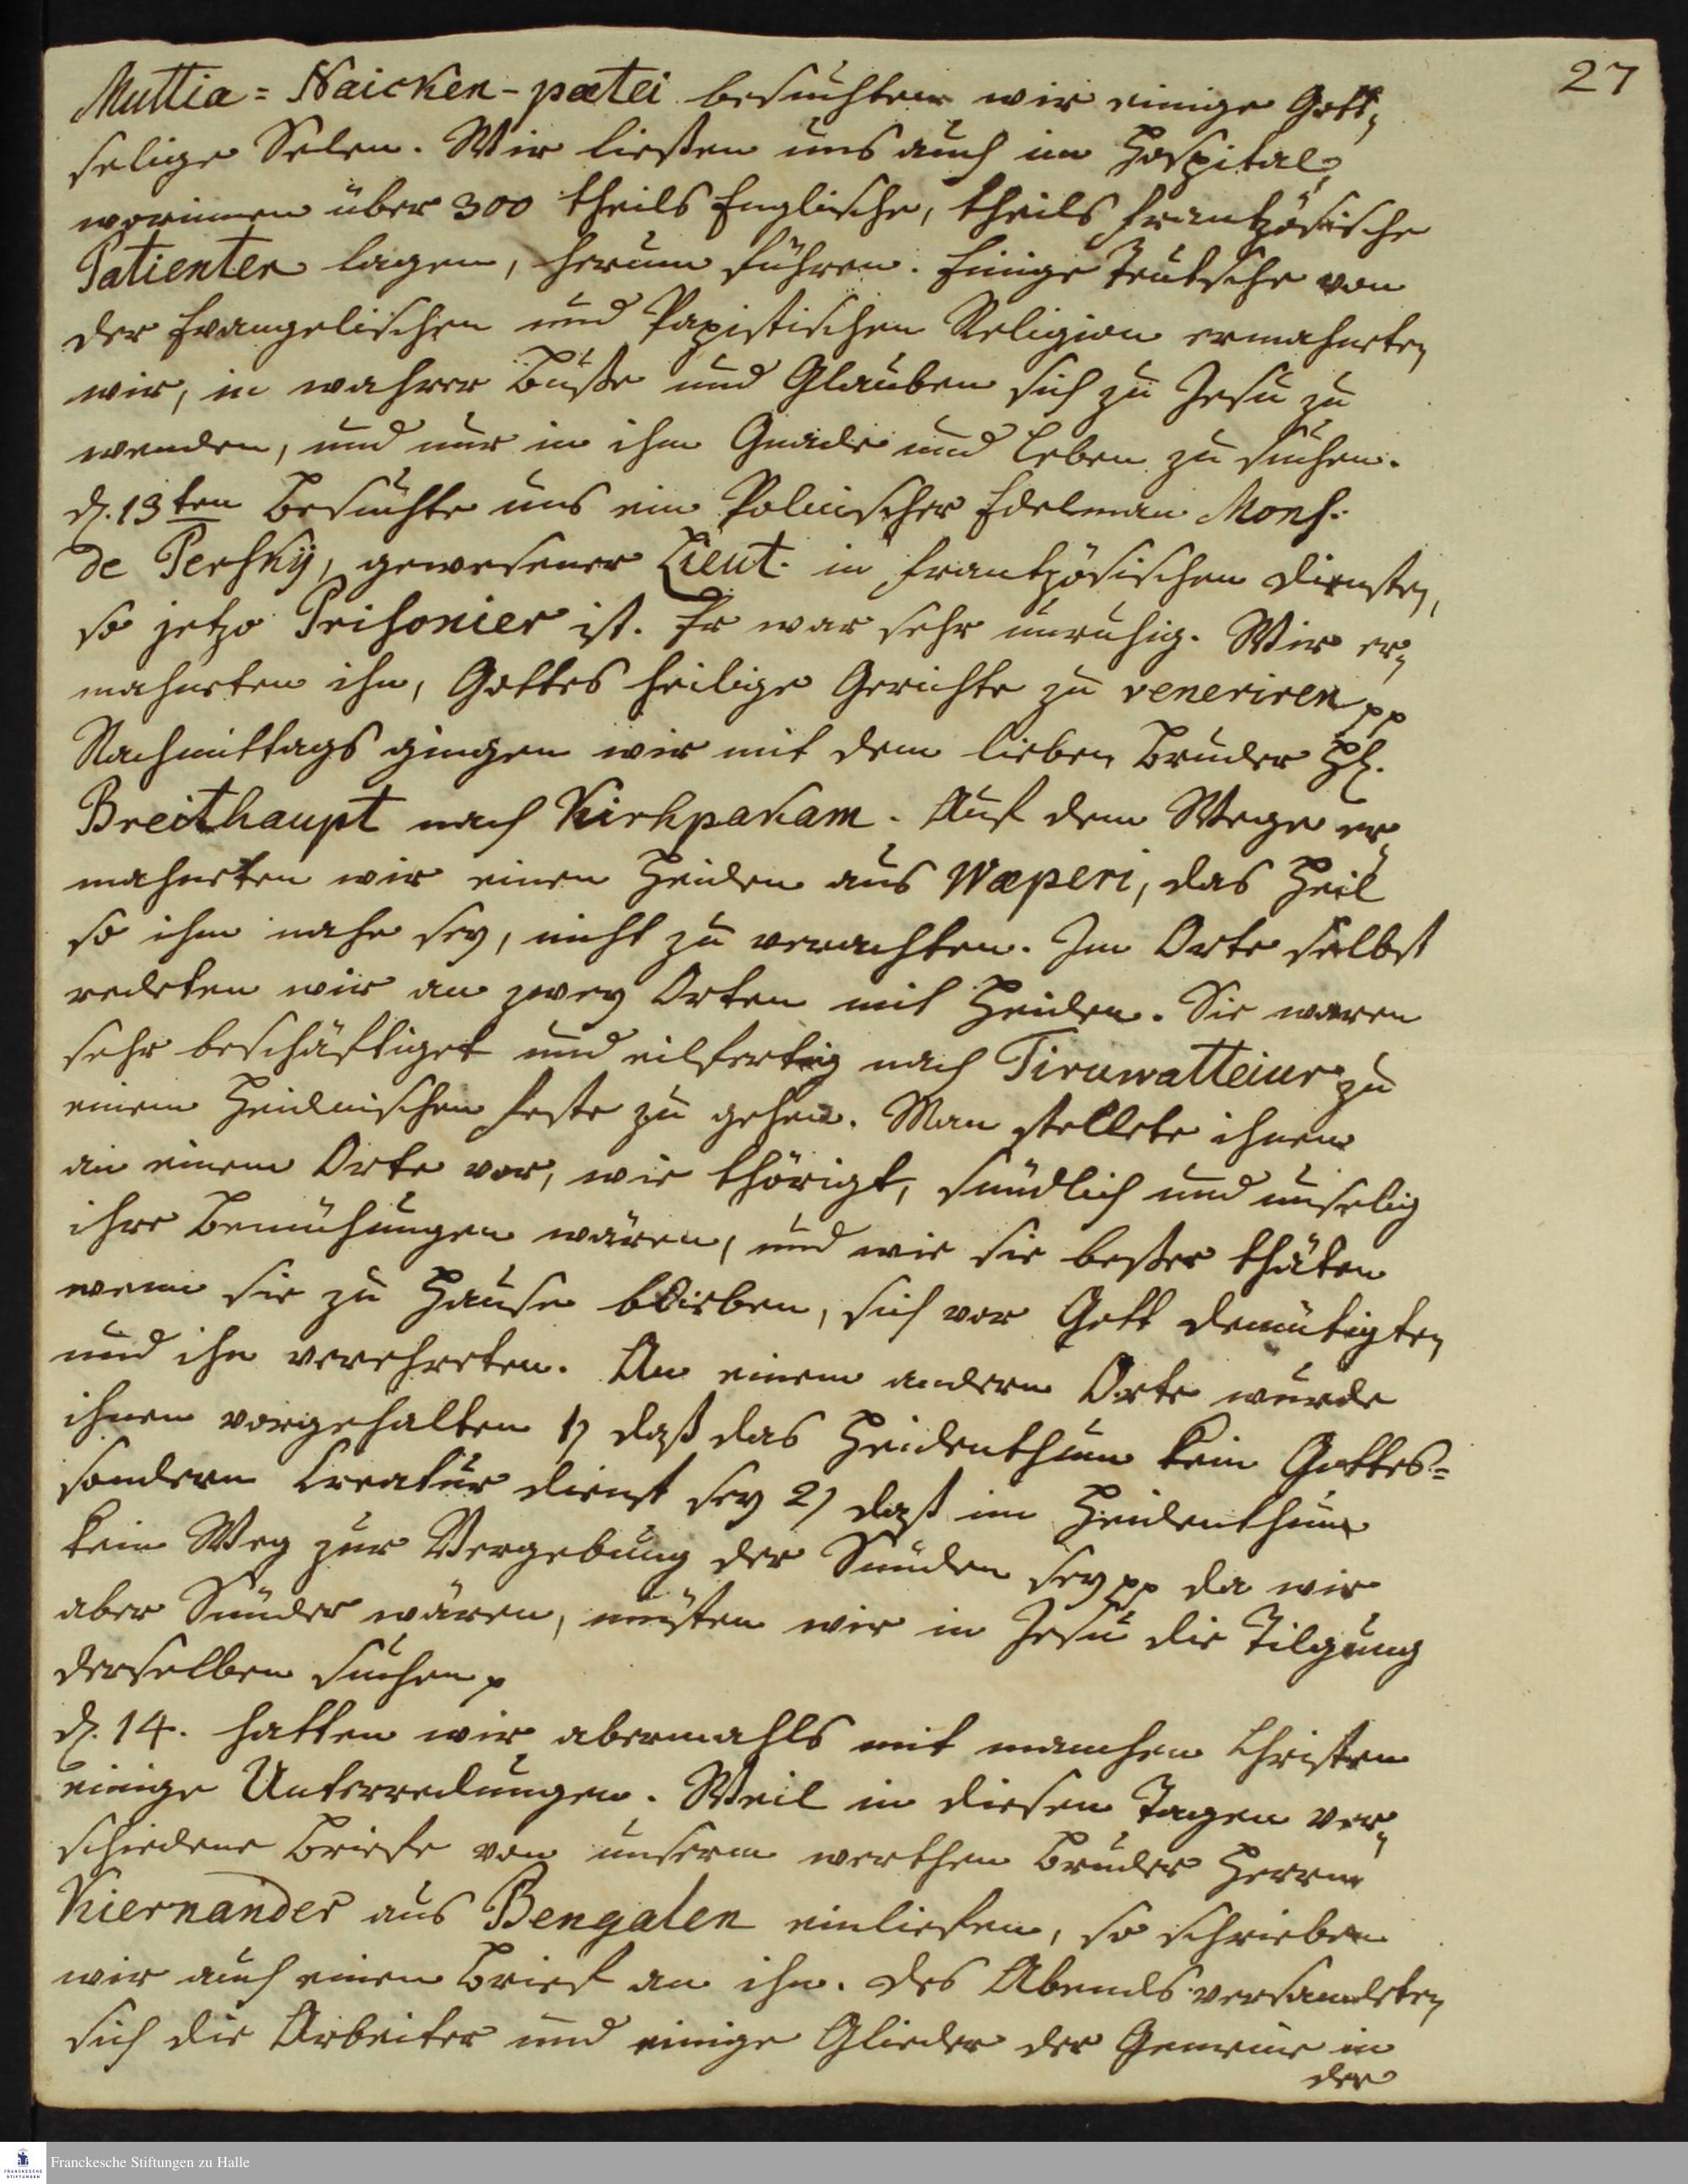 27
Muttia=Naicken-pœtei besuchten wir einige Gott-
selige Selen. Wir ließen uns auch im Hospital,
worinnen über 300 theils Englische, theils Frantzösische
Patienten lagen, herum führen. Einige Teutsche von
der Evangelischen und Papistischen Religion ermahneten
wir, in wahrer Buße und Glauben sich zu Jesu zu
wenden, und nur in ihm Gnade und Leben zu suchen.
d. 13ten Besuchte uns ein Polnischer Edelman Mons.
de Persky, gewesener Lieut. in Frantzösischen Diensten,
so jetzo Prisonier ist. Er war sehr unruhig. Wir er-
mahneten ihn, Gottes heilige Gerichte zu veneriren pp
Nachmittags gingen wir mit dem lieben Bruder H.
Breithaupt nach Kirhpakam. Auf dem Wege er-
mahneten wir einen Heiden aus Wœperi, das Heil
so ihm nahe sey, nicht zu verachten. Im Orte selbst
redeten wir an zwey Orten mit Heiden. Sie waren
sehr beschäftiget und eilfertig nach Tiruwatteiur zu
einem Heidnischen Feste zu gehen. Man stellete ihnen
an einem Orte vor, wie thörigt, sündlich und unselig
ihre Bemühungen wären, und wie sie beßer thäten
wenn sie zu Hause blieben, sich vor Gott demütigten
und ihn verehreten. An einem andern Orte wurde
ihnen vorgehalten 1) daß das Heidenthum kein Gottes=
sondern Creatur dienst sey 2) daß im Heidenthum
kein Weg zur Vergebung der Sünden sey pp da wir
aber Sünder wären, müsten wir in Jesu die Tilgung
derselben suchen p
d. 14. hatten wir abermahls mit manchen Christen
einige Unterredungen. Weil in diesen Tagen ver-
schiedene Briefe von unserm werthen Bruder Herrn
Kiernander aus Bengalen einliefen, so schrieben
wir auch einen Brief an ihn. Des Abends versamleten
sich die Arbeiter und einige Glieder der Gemeine in
der
Franckesche Stiftungen zu Halle